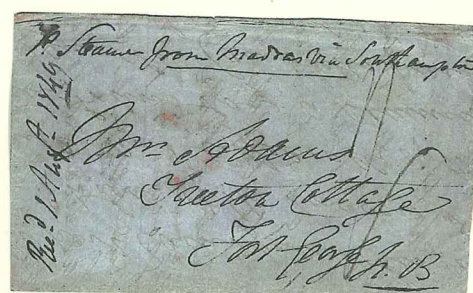 Pr Steamer from Madras via Southampton
Recd 1 Augt 1849
Mrs Adams
Treeton Cottage
Fort George N. B